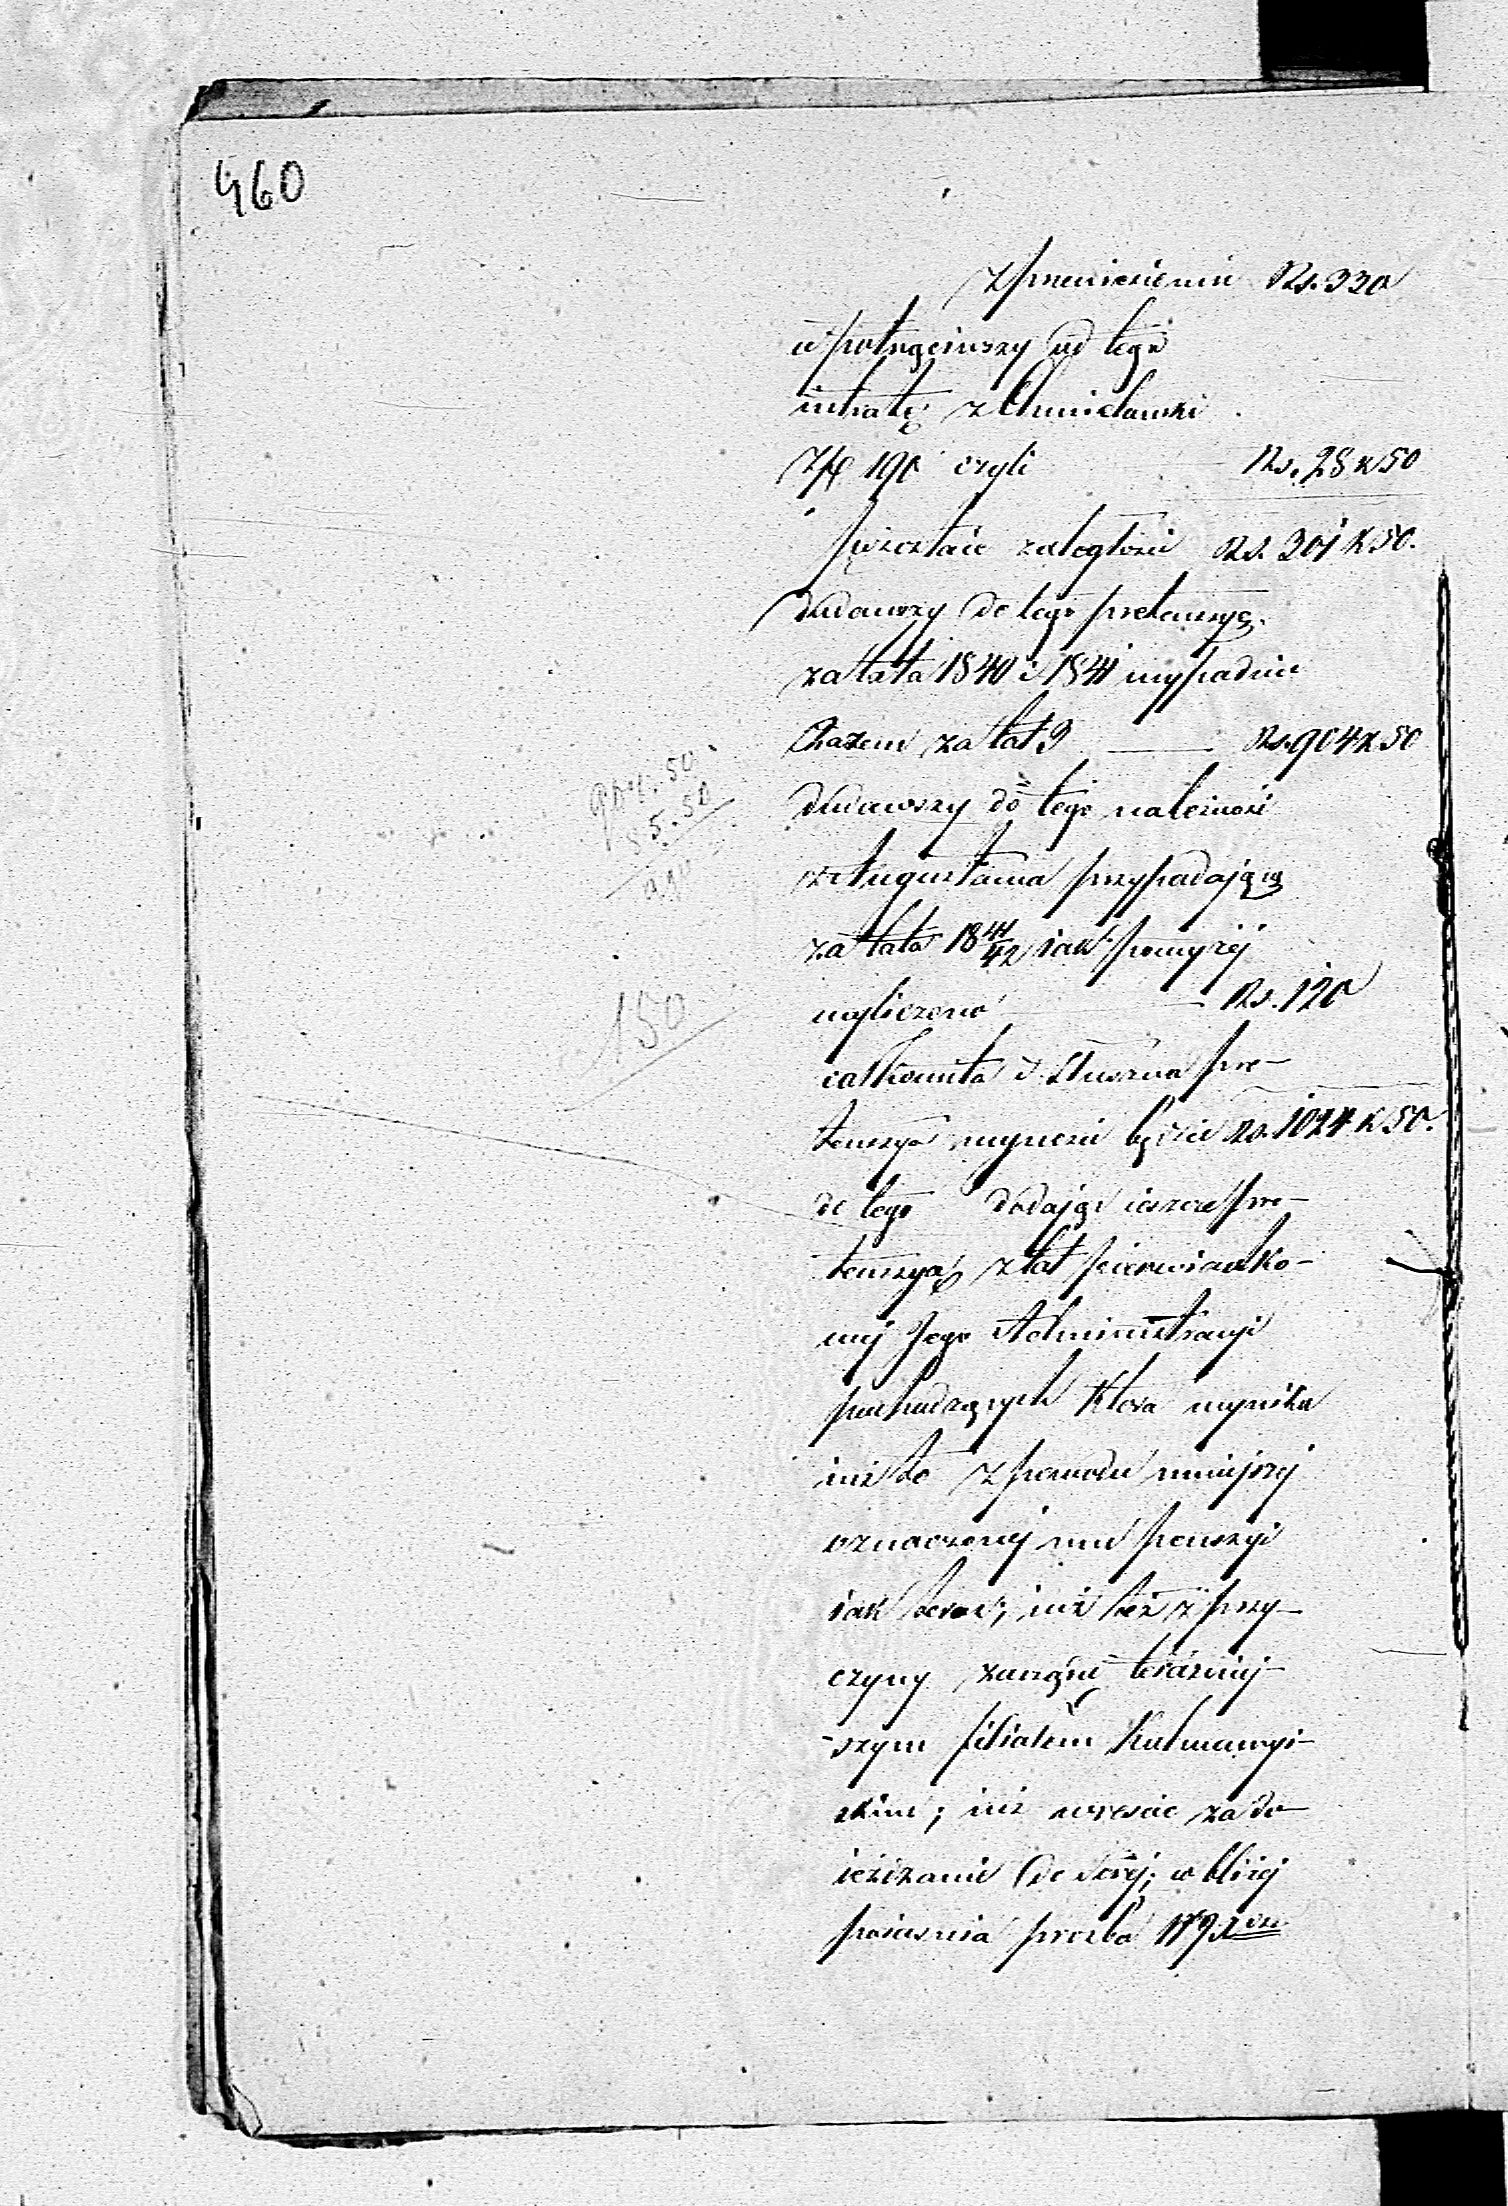 460
Z przeniesienia Rs. 330
a potrąciwszy od tego
intratę z Chmielówki
Złp 190 czyli — Rs. 28 k 50
pozostaie zaległosci Rs. 301 k 50.
dodawszy do tego pretensyę
za lata 1840 i 1841 wypadnie
Razem za lat 3 — Rs. 904 k 50
dodawszy do tego należność
z Augustowa przypadaiącą
za lata 18 41/42 iak powyżéj
wyliczono — Rs. 120
całkowita i słuszna pre-
tensya wyniesie będzie Rs. 1024 k 50.
do tego dodając ieszcze pre-
tensyą z lat pierwiastko-
wéj Jego Administracyi
pochodzących która wynika
iuż to z powodu mniejszéj
oznaczonéj mu pensyi
iak teraz; iuż też z przy-
czyny teraźniej-
-szym filialem
skim; iuż wreście za do-
ieżdzanie do; w bliżéj
prozba 179
50
5.50
150